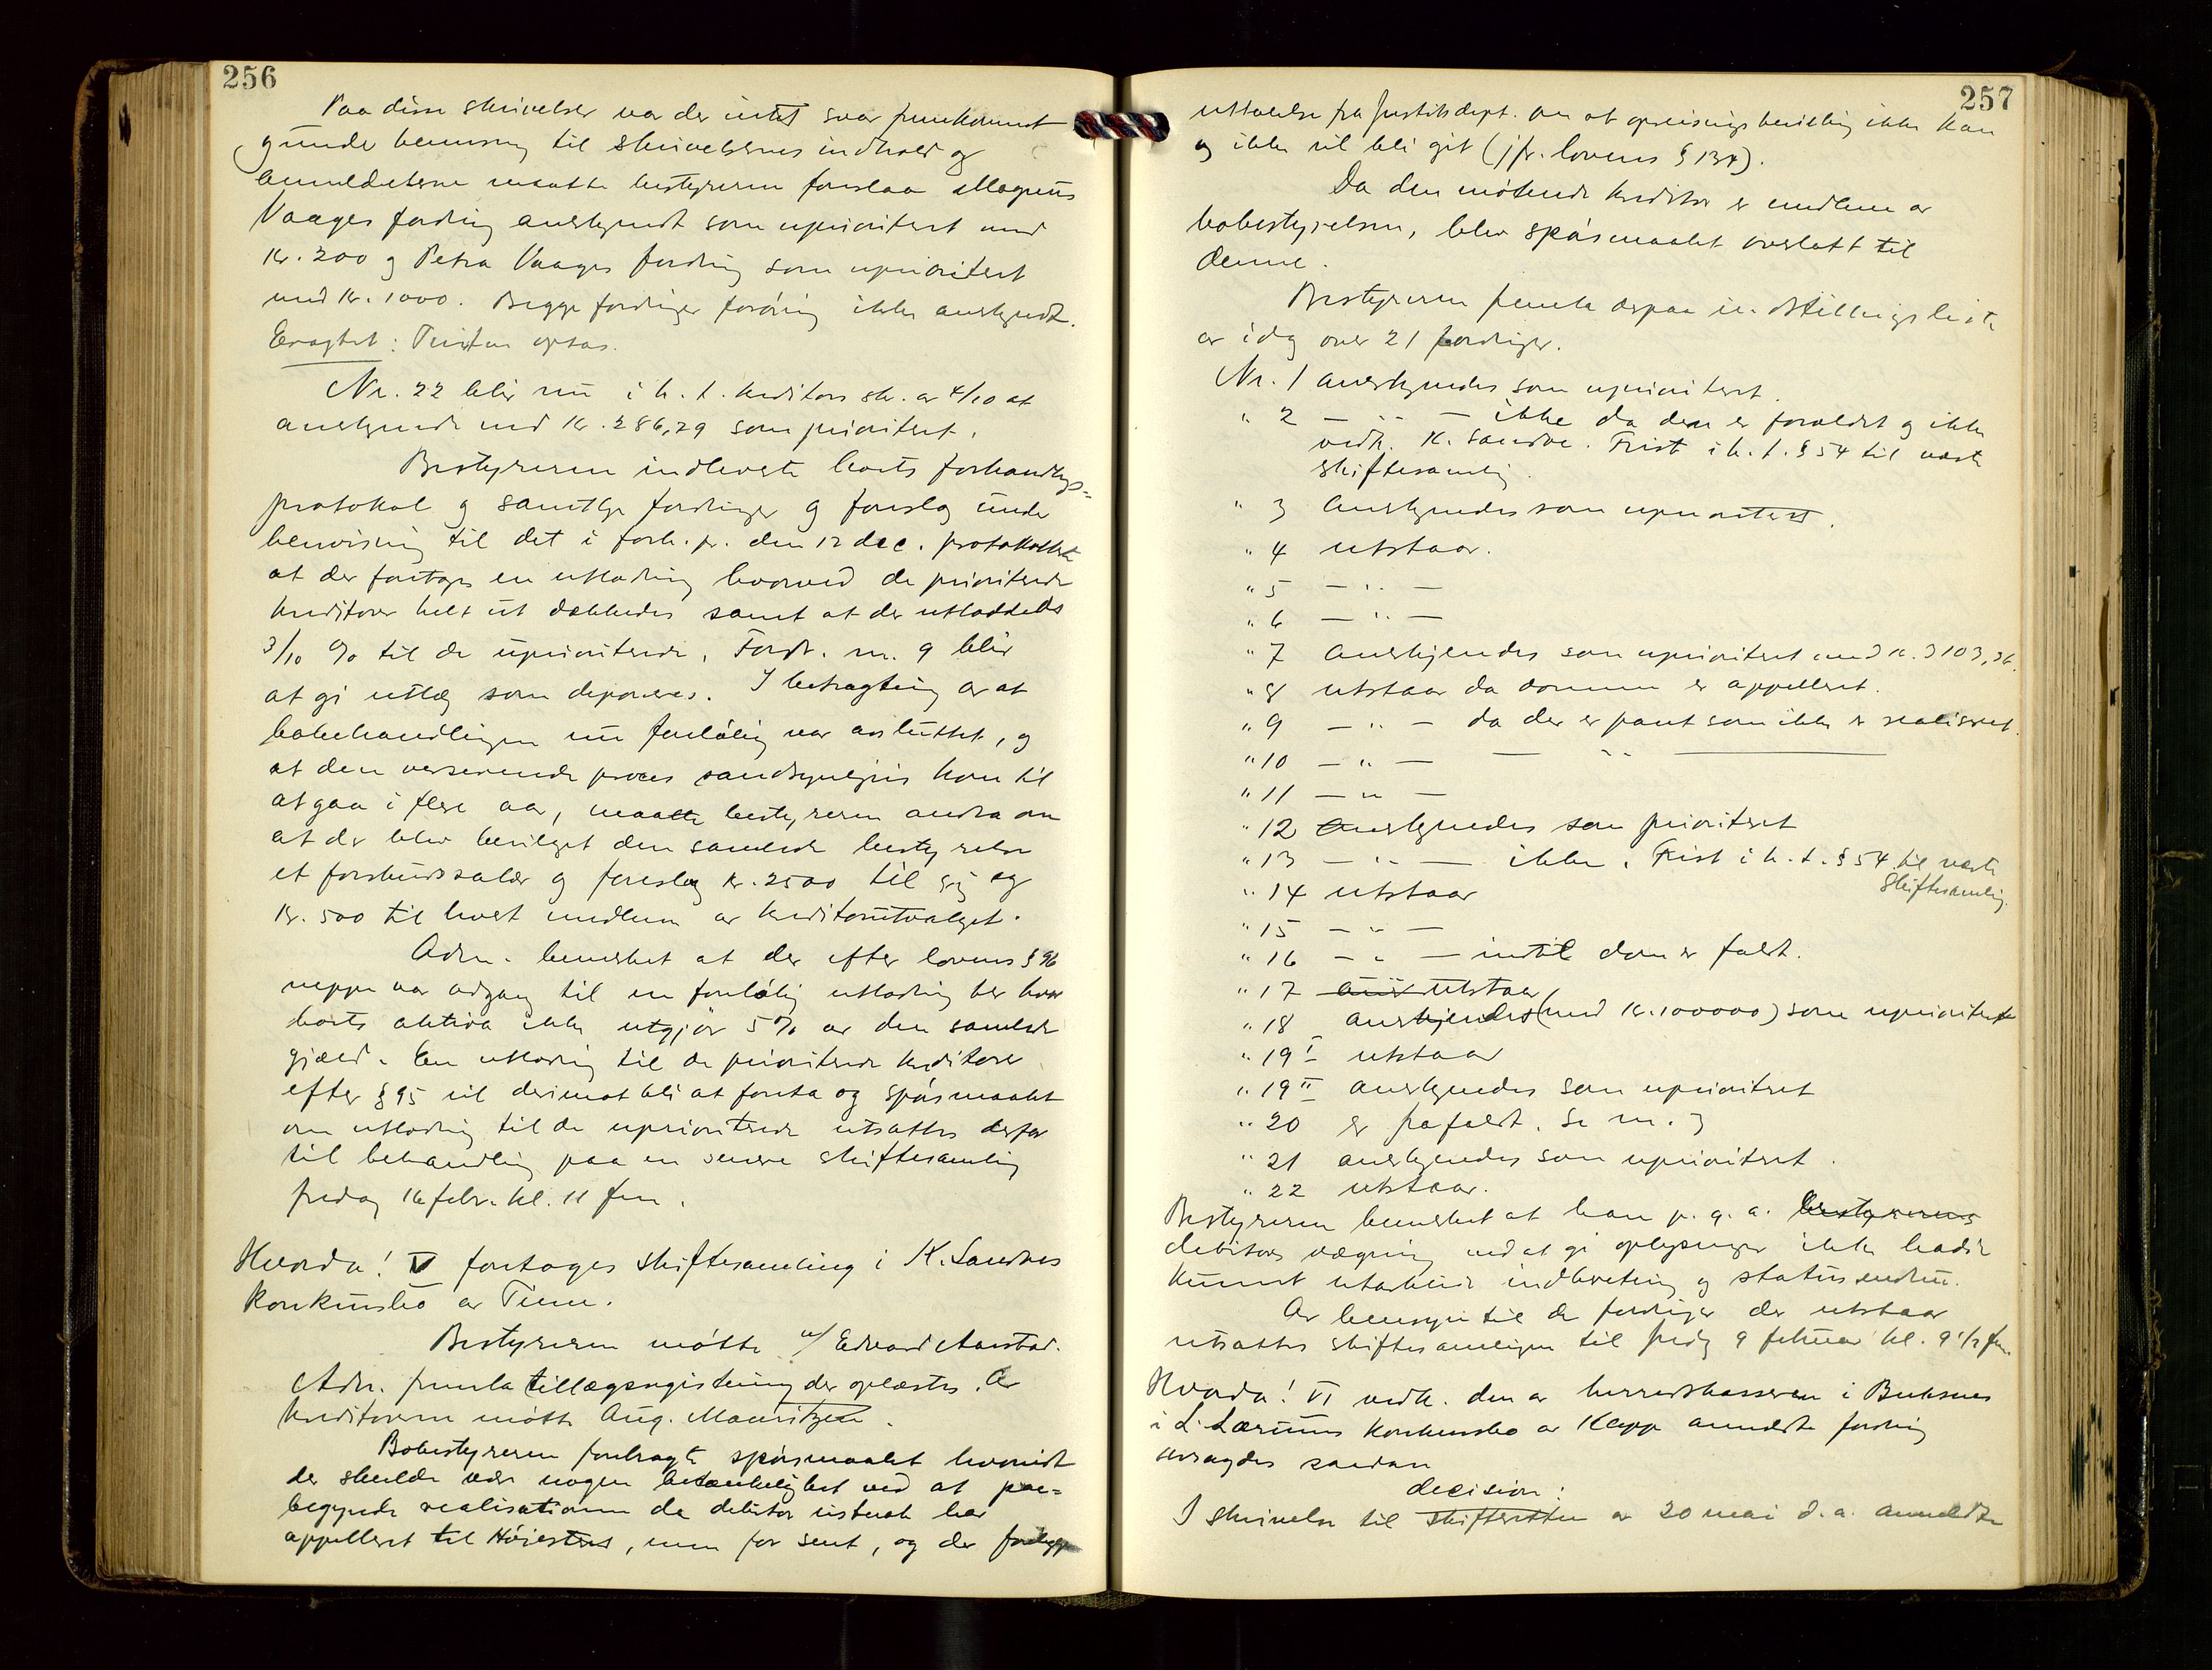 256
Paa disse skrivelser var der intet svar fremkommet
g under henvisning til skrivelsernes indhold og
anmeldelserne maatte bestyreren foreslaa Magnus
Vaages fordring anerkjendt som uprioritert med
kr. 200 og Petra Vaages fordring som uprioritert
med kr. 1000. Begge fordringer forøvrig ikke anerkjendt.
Eragtet: Tvisten optas.
Nr. 22 blir nu i h. t. kreditors skr. av 4/10 at
anerkjende med kr. 286,29 som prioritert.
Bestyreren indleverte boets forhandlings=
protokol og samtlige fordringer og foreslog under
henvisning til det i forh.pr. den 12 dec. protokollerte
at der foretages en utlodning hvorved de prioriterte
kreditorer helt ut dækkedes samt at der utloddedes
3/10 % til de uprioriterede. Fordr. nr. 9 blir
at gi utlæg som deponeres. I betragtning av at
bobehandlingen nu foreløbig var avsluttet, og
at den verserende proces sandsynligvis kom til
at gaa i flere aar, maatte bestyreren andra om
at der blev bevilget den samlede bestyrelse
et forskudssalær og foreslog kr. 2500 til sig og
kr. 500 til hvert medlem av kreditorutvalget.
Adm. bemerket at der efter lovens § 96
neppe var adgang til en foreløbig utlodning her hvor
boets aktiva ikke utgjør 5% av den samlede
gjæld. En utlodning til de prioriterte kreditorer
efter § 95 vil derimot bli at foreta og spørsmaalet
om utlodning til de uprioriterte utsattes derfor
til behandling paa en senere skiftesamling
fredag 16 febr. kl. 11 fm.
Hvorda! V foretages skiftesamling i K. Sandves
konkursbo av Time.
Bestyreren møtte v/ Edvard Aarstad.
Adm. fremla tillægsregistrering der oplæstes. Av
kreditorerne møtte Aug. Mauritzen.
Bobestyreren forebragte spørsmaalet hvorvidt
der skulde være nogen betænkelighet ved at paa=
begynde realisationen da debitor visstnok har
appelleret til Høiesteret, men for sent, og der foreligger
257
uttalelse fra Justitsdept. om at opreisningsbevilling ikke kan
og ikke vil bli git (jfr. lovens § 134).
Da den møtende kreditor er medlem av
bobestyrelsen, blev spørsmaalet overlatt til
denne.
Bestyreren fremla derpaa indstillingsliste
av idag over 21 fordringer.
Nr. 1 anerkjendes som uprioritert.
" 2 — " — ikke da den er forældet og ikke
vedk. K. Sandve. Frist i h. t. § 54 til næste
skiftesamling.
" 3 Anerkjendes som uprioritert.
" 4 utstaar.
" 5 — " —
" 6 — " —
" 7 Anerkjendes som uprioritert med kr. 3103,36.
" 8 utstaar da dommen er appelleret.
" 9 — " — da der er pant som ikke er realisert.
" 10 — " — — " —
" 11 — " —
" 12 Anerkjendes som prioritert
" 13 — " — ikke. Frist i h. t. § 54 til næste
skiftesamling.
" 14 utstaar
" 15 — " —
" 16 — " — indtil dom er faldt.
" 17 utstaar
" 18 anerkjendes (med kr. 100000) som uprioritert
" 19 I utstaar
" 19 II anerkjendes som uprioritert
" 20 er frafaldt. Se nr. 3
" 21 anerkjendes som uprioritert.
" 22 utstaar.
Bestyreren bemerket at han p. g. a. bestyrerens
debitors vægring ved at gi oplysninger ikke hadde
kunnet utarbeide indberetning og status endnu.
Av hensyn til de fordringer der utstaar
utsattes skiftesamlingen til fredag 9 februar kl. 9 1/2 fm.
Hvorda! VI vedk. den av herredskasseren i Buksnes
i L. Lærums konkursbo av Klepp anmeldte fordring
avsagdes saadan
decision:
I skrivelse til skifteretten av 20 mai d. a. anmeldte